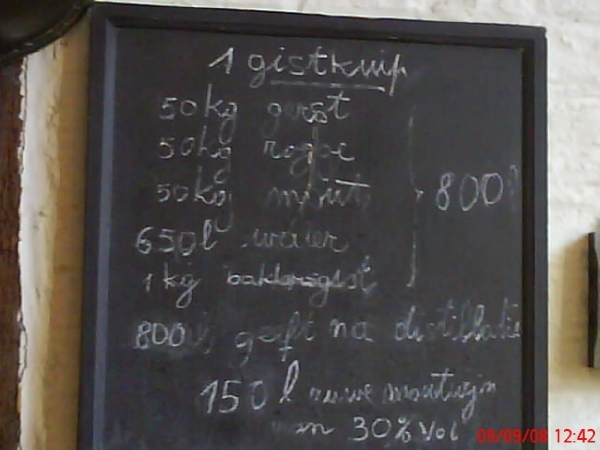 1 gistkuip
50kg gerst
50kg rogge
50kg mout
800l
650l water
1 kg bakkersgist
800l geeft na distillatie
150l ruwe moutwijn
van 30% vol
09/09/08 12:42